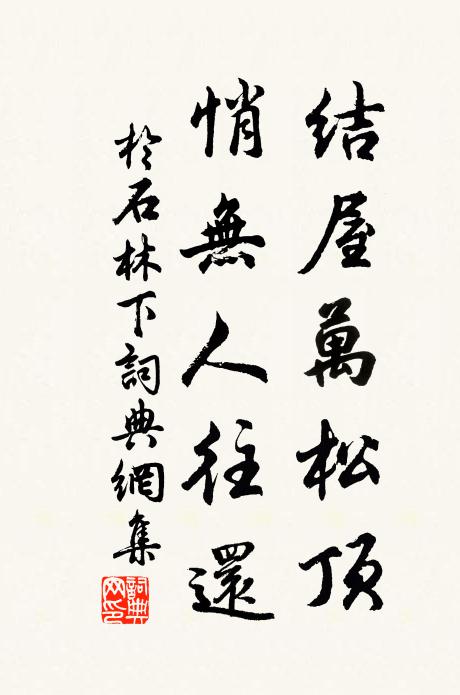 结屋萬松顶
悄無人往還
於石林下詞典網集
詞典
网印